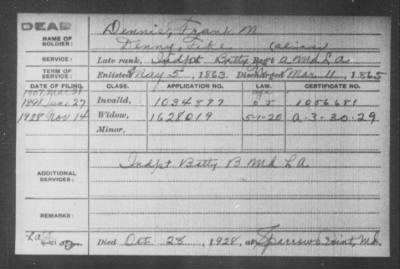 DEAD
NAME OF SOLDIER: Dennis, Frank M.
Denny, Fike (alias)
SERVICE: Late rank, Indpt Batty Reg't A Md L A
TERM OF SERVICE: Enlisted May 5, 1863, Discharged Mar 11, 1865
DATE OF FILING. CLASS. APPLICATION NO. LAW. CERTIFICATE NO.
1907 Mar
1891 June 27 Invalid, 1034877 1056681
1928 Nov 14 Widow, 1628019 5-1-20 A-3-30-29
Minor,
ADDITIONAL SERVICES: Indpt Batty B Md L A
REMARKS:
Died Oct 28, 1928, at Sparrows Point, Md.